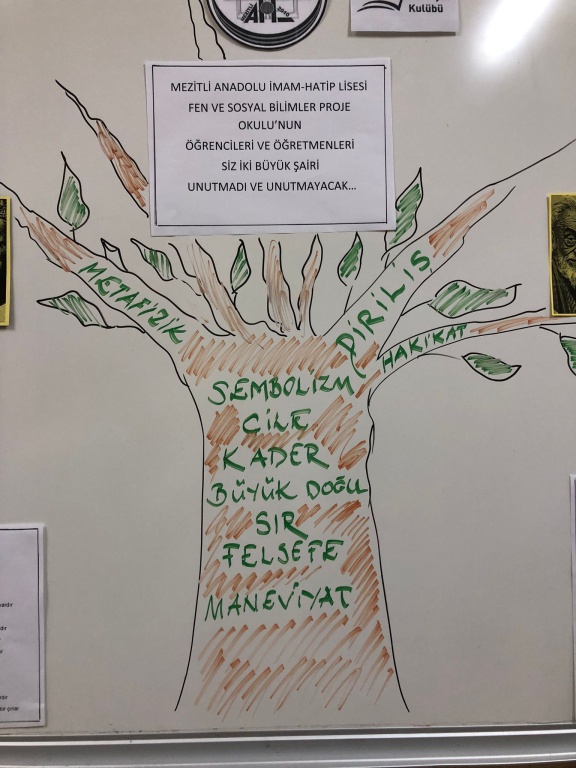 AHL
2010
Kulübü
MEZİTLİ ANADOLU İMAM-HATİP LİSESİ
FEN VE SOSYAL BİLİMLER PROJE
OKULU'NUN
ÖĞRENCİLERİ VE ÖĞRETMENLERİ
SİZ İKİ BÜYÜK ŞAİRİ
UNUTMADI VE UNUTMAYACAK...
METAFİZİK
DİRİLİŞ
HAKİKAT
SEMBOLİZM
ÇİLE
KADER
BÜYÜK DOĞU
SIR
FELSEFE
MANEVİYAT